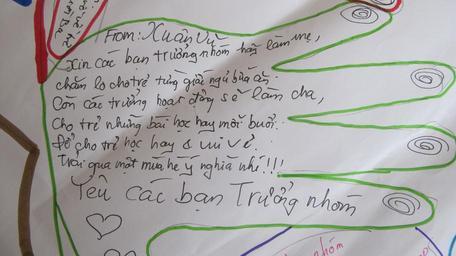 From: Xuân Vũ
Xin các bạn trưởng nhóm hãy làm mẹ,
chăm lo cho trẻ từng giấc ngủ bữa ăn.
Còn các trưởng hoạt động sẽ làm cha,
Cho trẻ những bài học hay mỗi buổi.
Để cho trẻ học hay & vui vẻ.
Trải qua một mùa hè ý nghĩa nhí!!!
Yêu các bạn Trưởng nhóm
nhóm